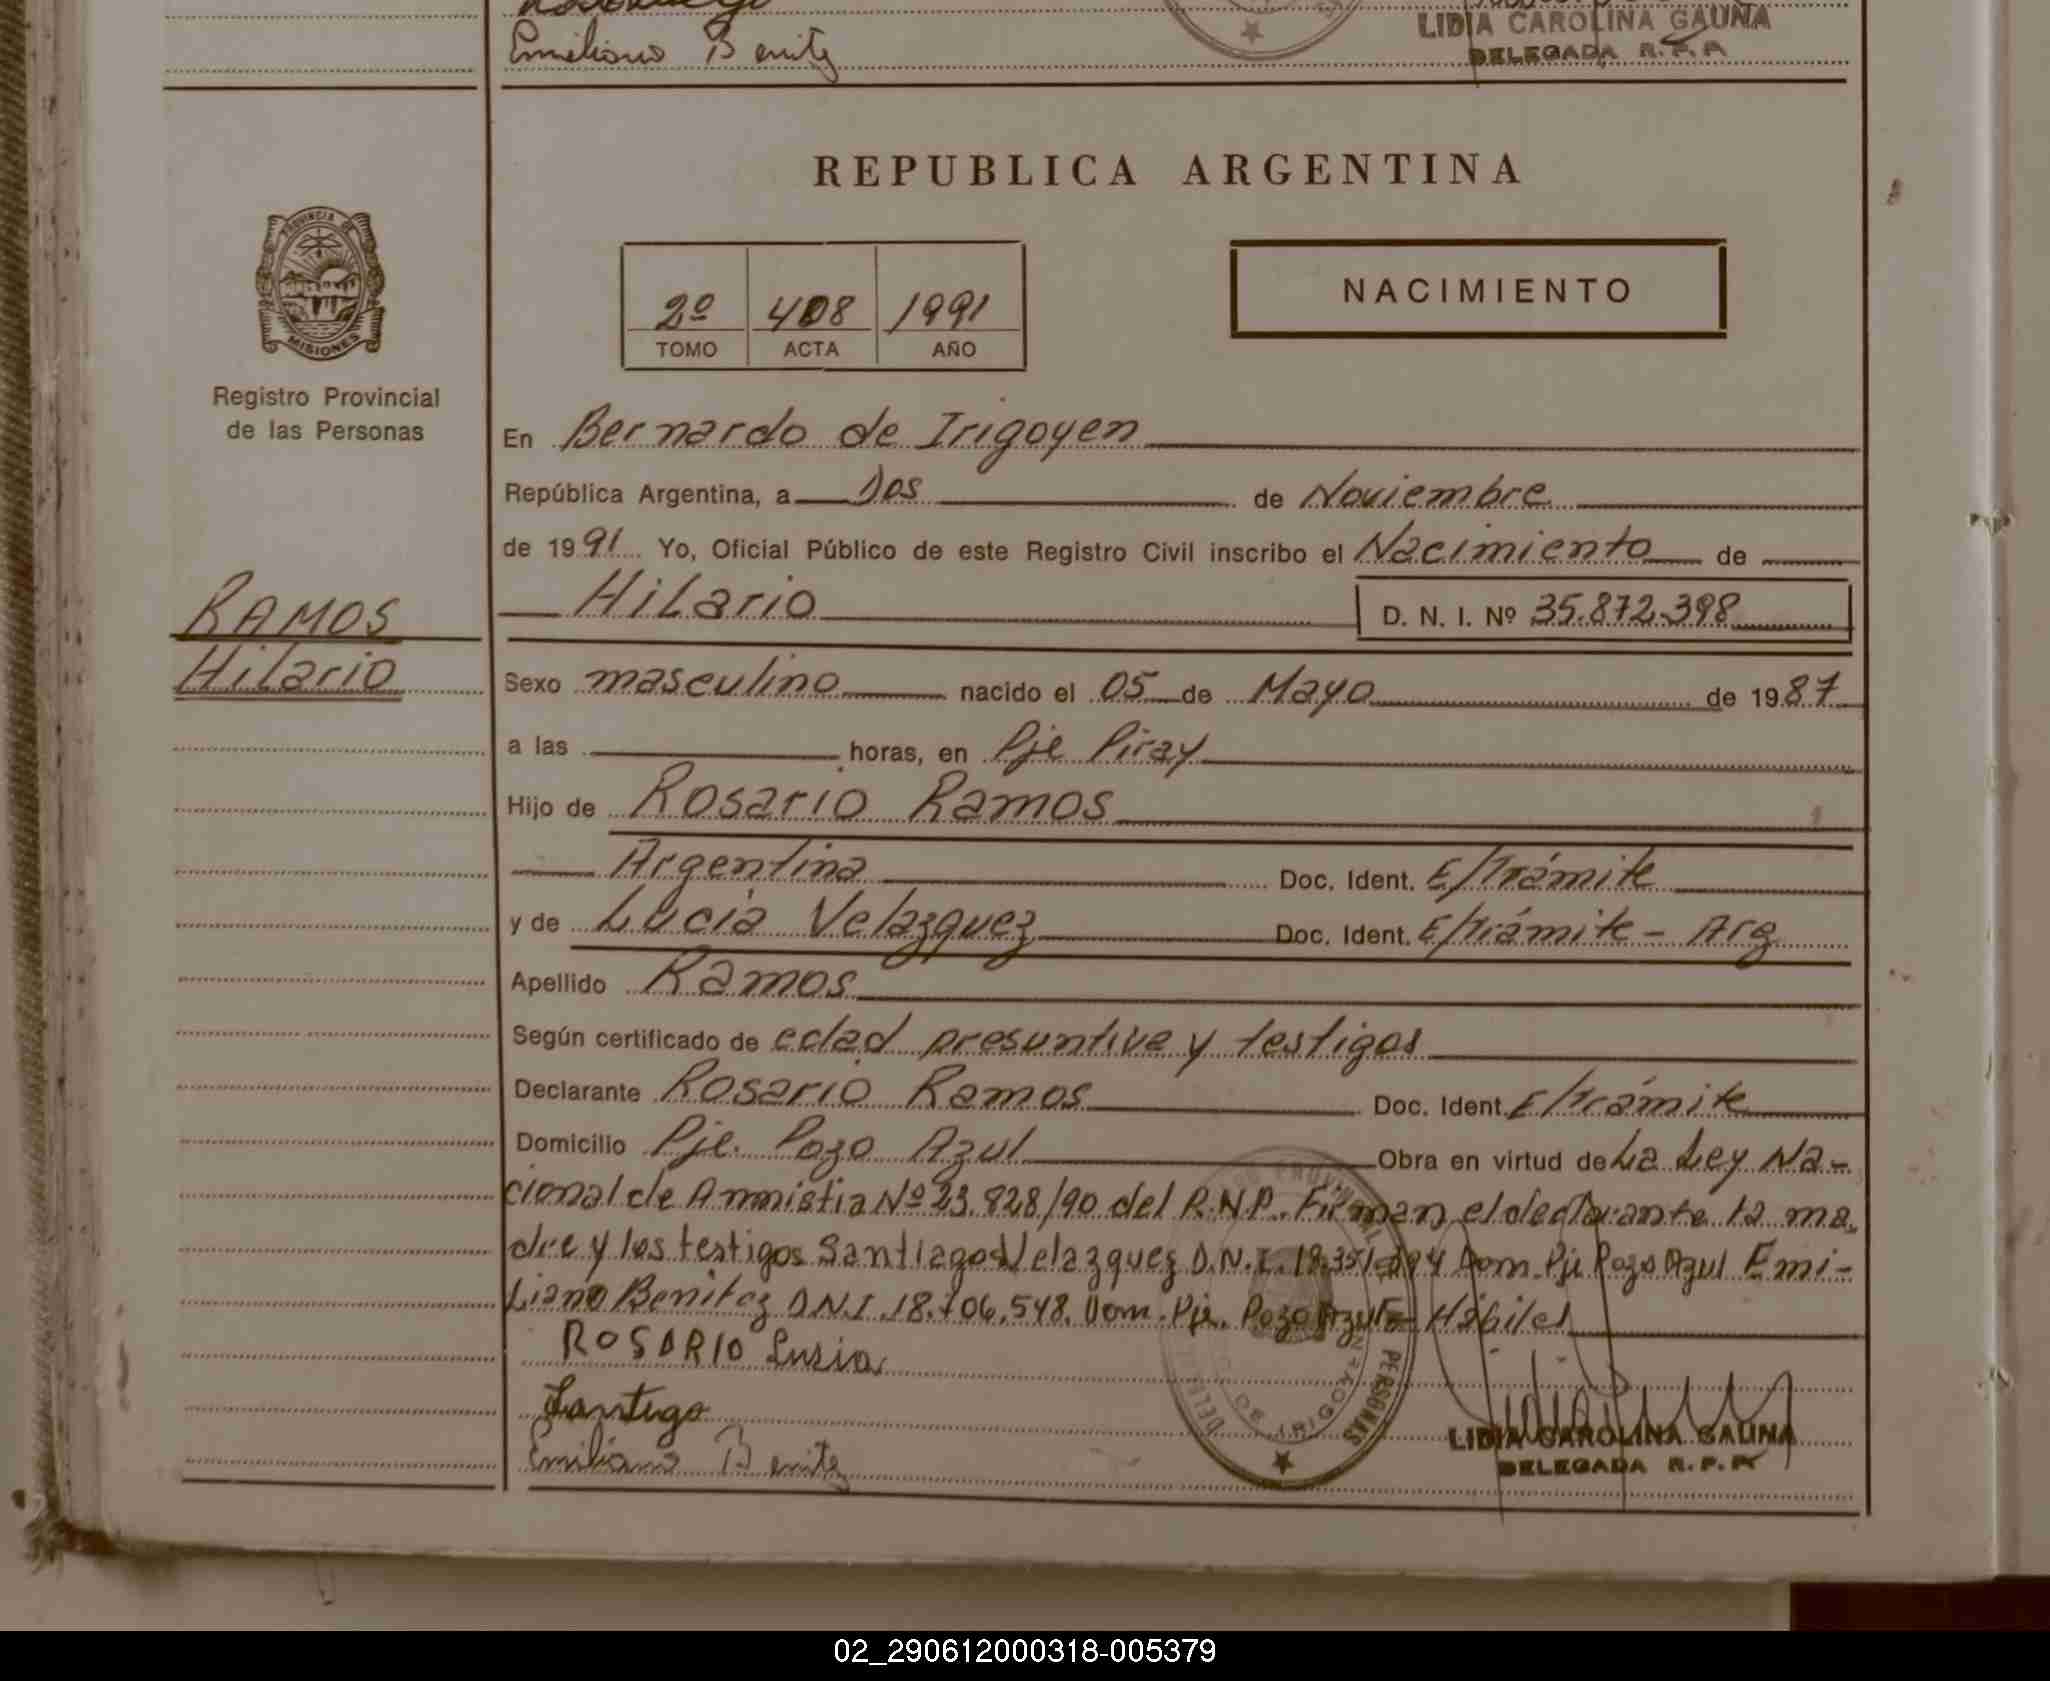 Emiliano Benitez
LIDIA CAROLINA GAUNA
DELEGADA R.P.P.
REPUBLICA ARGENTINA
PROVINCIA DE
MISIONES
2º 408 1991
TOMO ACTA AÑO
NACIMIENTO
Registro Provincial
de las Personas
En Bernardo de Irigoyen
República Argentina, a Dos de Noviembre
de 1991 Yo, Oficial Público de este Registro Civil inscribo el Nacimiento de
Hilario D. N. I. Nº 35.872.398
RAMOS
Hilario
Sexo masculino nacido el 05 de Mayo de 1987
a las horas, en Pje Piray
Hijo de Rosario Ramos
Argentina Doc. Ident. E/trámite
y de Lucia Velazquez Doc. Ident. E/trámite - Arg
Apellido Ramos
Según certificado de edad presuntiva y testigos
Declarante Rosario Ramos Doc. Ident. E/trámite
Domicilio Pje. Pozo Azul Obra en virtud de La Ley Na-
cional de Amnistia Nº 23.828/90 del R.N.P. Firman el declarante la ma-
dre y los testigos Santiago Velazquez D.N.I. Dom. Pje Pozo Azul Emi-
liano Benitez D.N.I. 18.706.548. Dom. Pje. Pozo Azul Hábiles
ROSARIO Lusia
Santiago
Emiliano Benitez
LIDIA CAROLINA GAUNA
DELEGADA R.P.P.
02_290612000318-005379